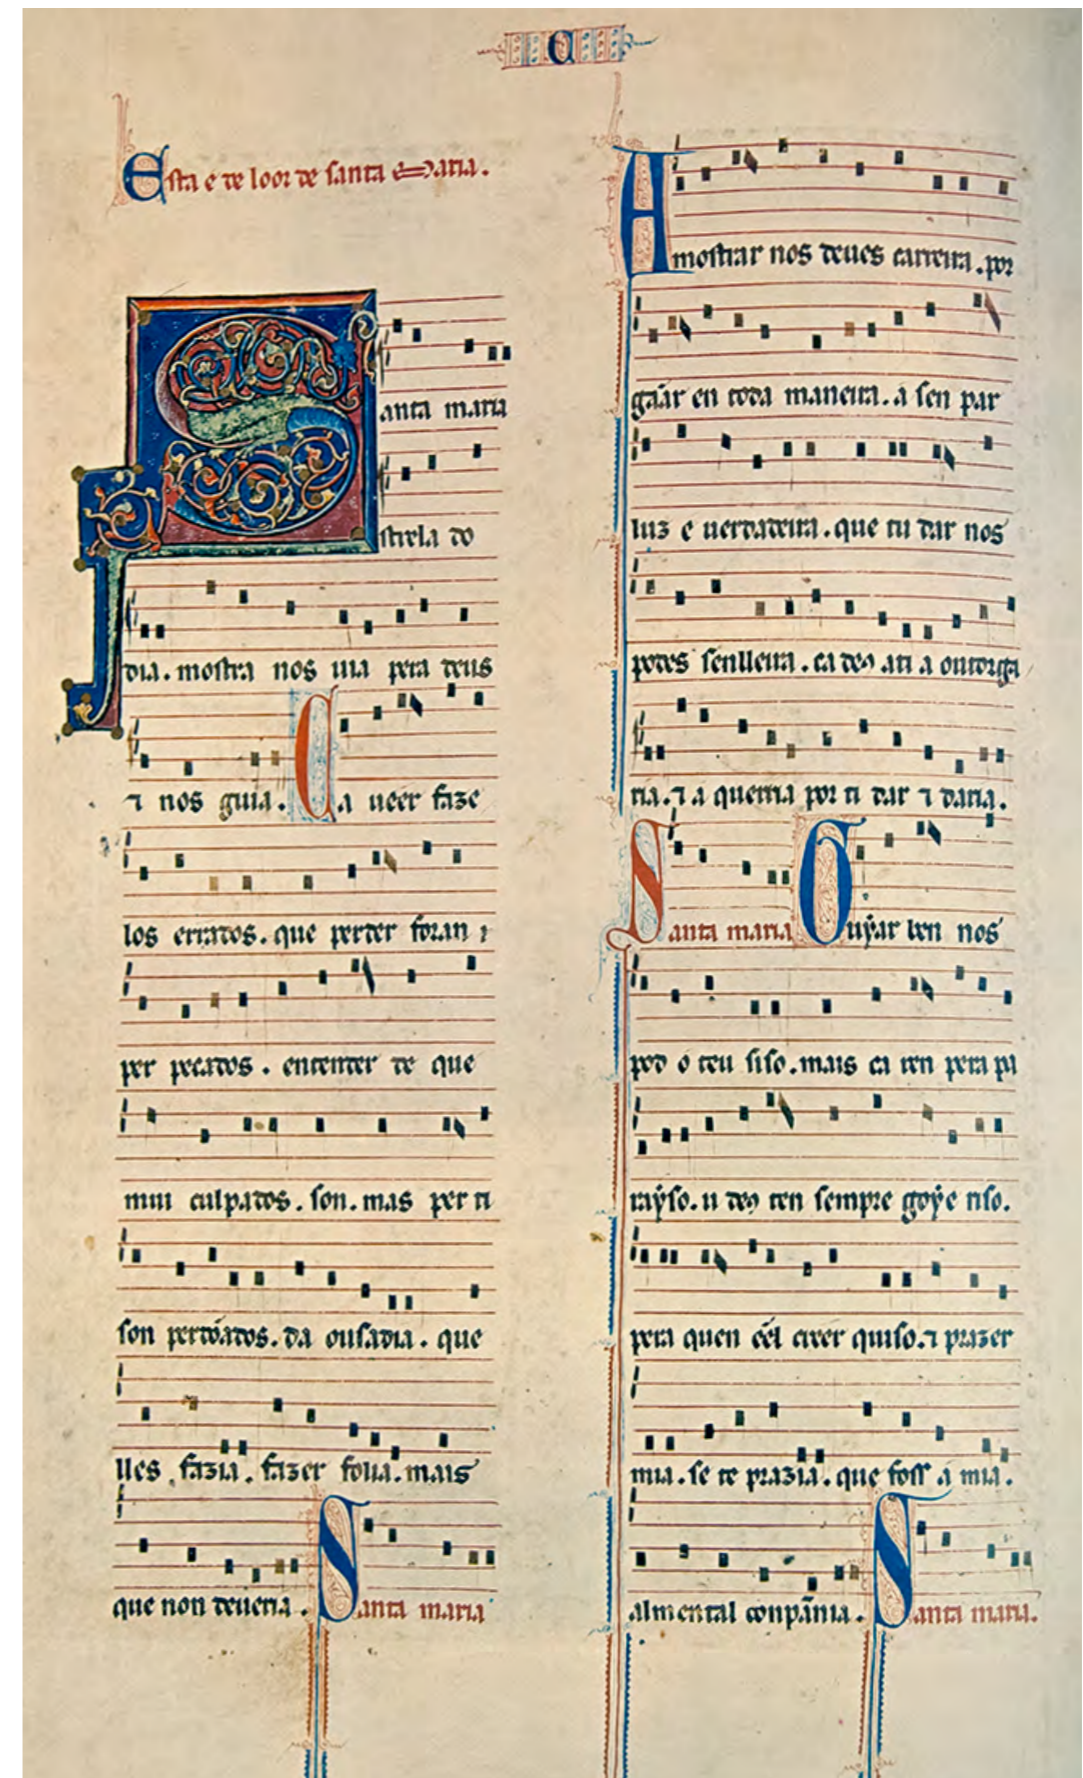 C
Esta e de loor de santa Maria.
Santa maria
strela do
dia. mostra nos uia pera deus
⁊ nos guia. Ca ueer faze
los errados. que perder foran
per pecados. entender de que
mui culpados. son. mas per ti
son perdõados. da ousadia. que
lles fazia. fazer folia. mais
que non deueria. Santa maria
Amostrar nos deues carreira. por
gãar en toda maneira. a sen par
luz e uerdadeira. que tu dar nos
podes senlleira. ca deꝯ a ti a outorga
ria. ⁊ a querria por ti dar ⁊ daria.
Santa maria Guÿar ben nos
pod o teu siso. mais ca ren pera pa
raÿso. u deꝯ ten sempre goÿ e riso.
pera quen eel creer quiso. ⁊ prazer
mia. se te prazia. que foss a mia.
alm en tal conpãnia. Santa maria.